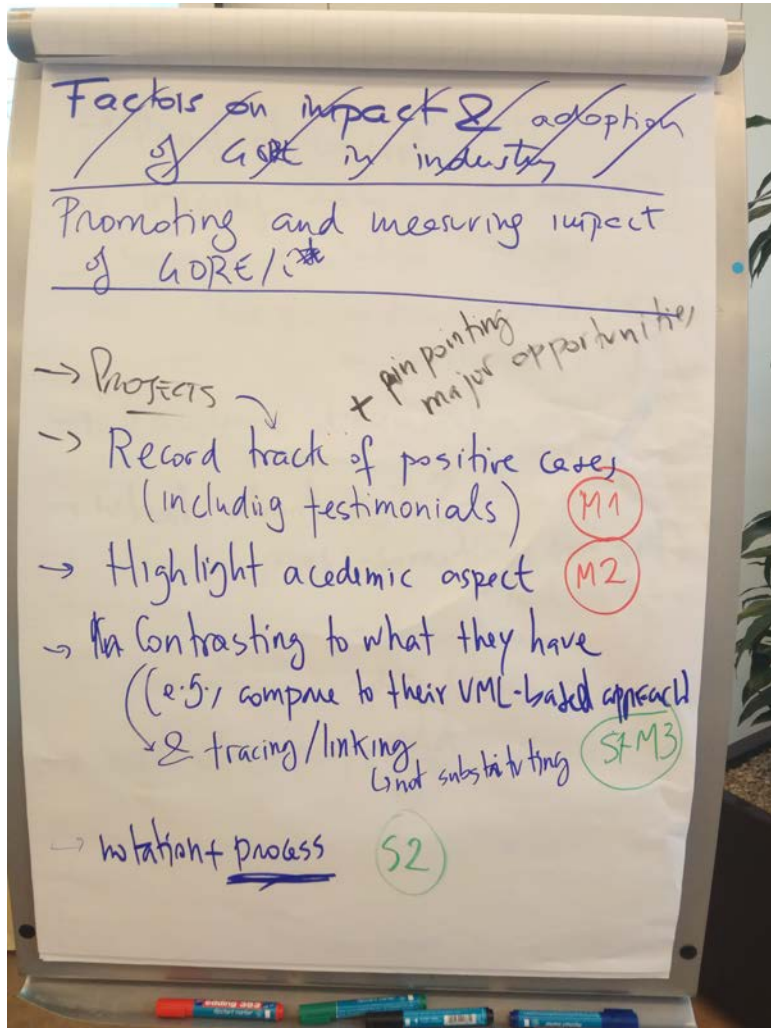 Factors on impact & adoption
of GORE in industry
Promoting and measuring impact
of GORE/i*
+ pin pointing
major opportunities
→ PROJECTS
→ Record track of positive cases
(including testimonials) M1
→ Highlight acedemic aspect M2
→ Contrasting to what they have
(e.g., compare to their UML-based approach)
& tracing/linking
↳ not substituting S+M3
→ notation+ process S2
edding 383